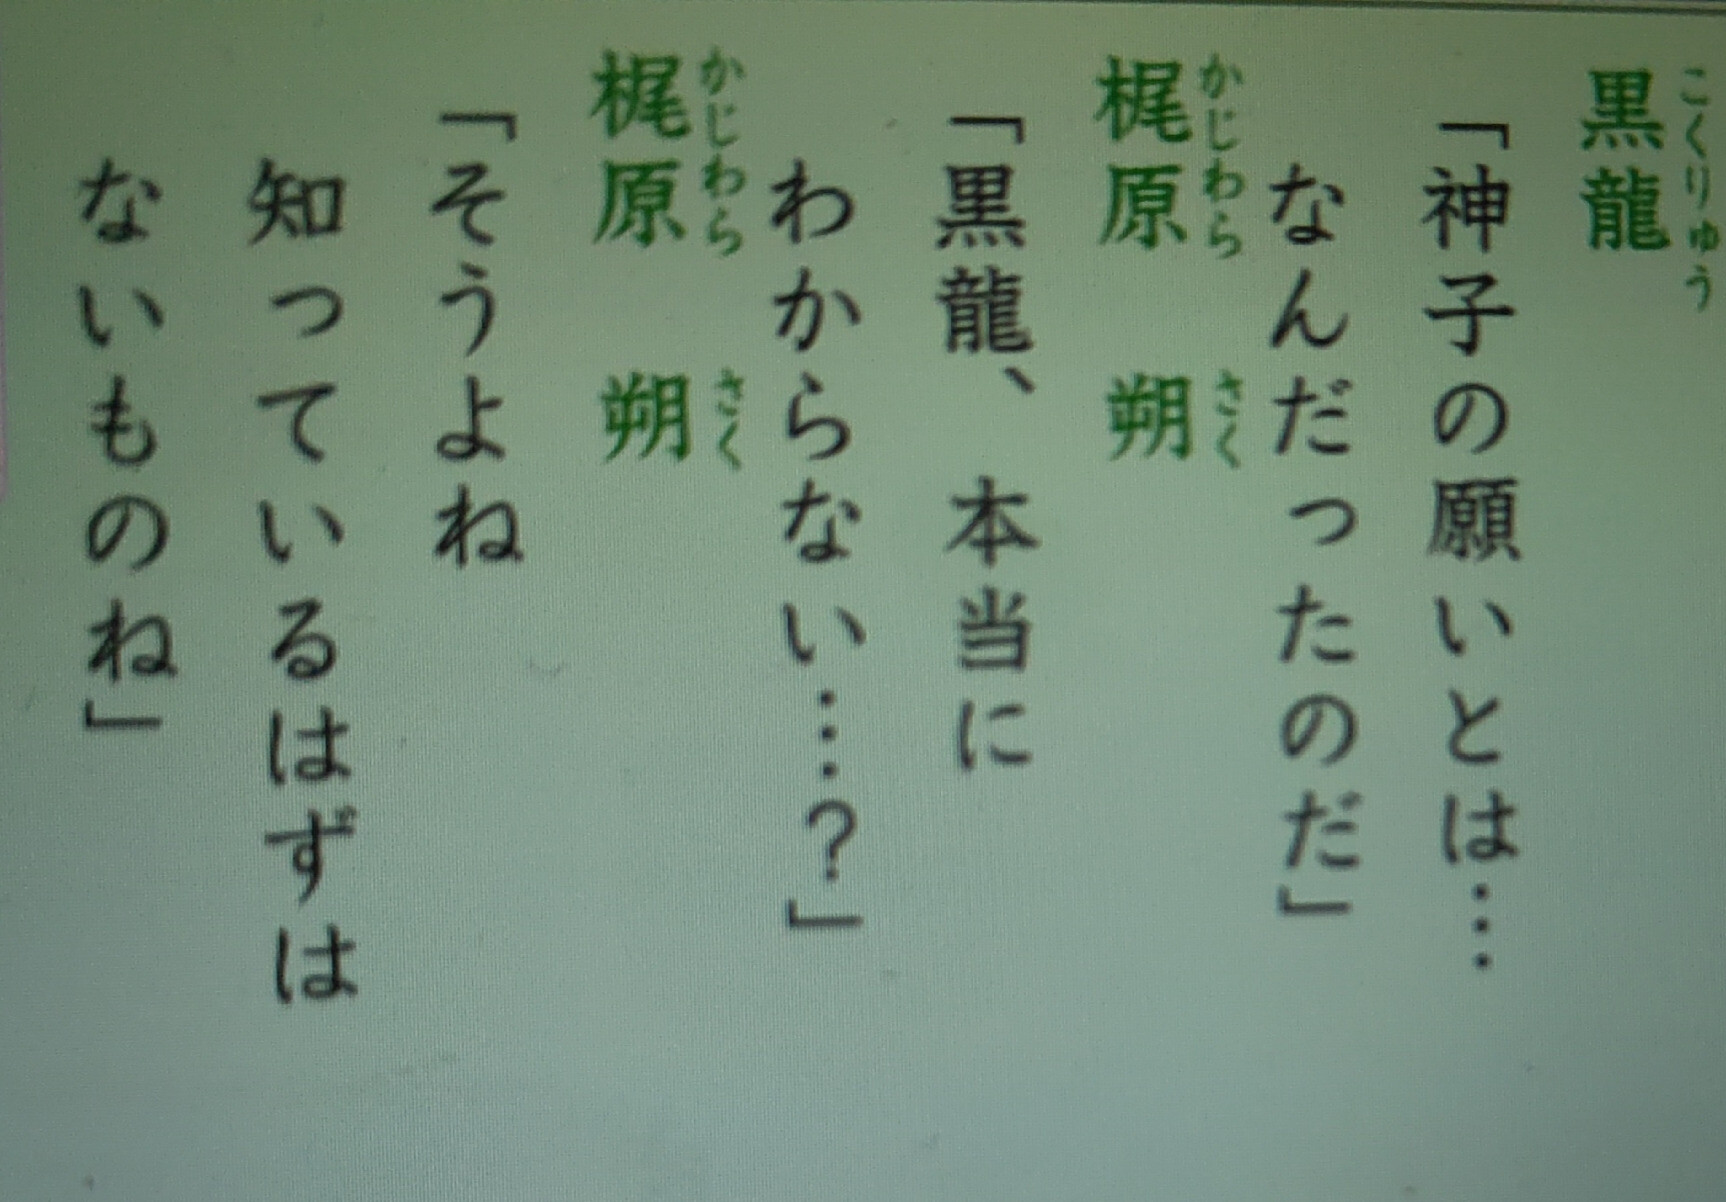 黒龍
こくりゅう
「神子の願いとは…
なんだったのだ」
梶原 朔
かじわら さく
「黒龍、本当に
わからない…？」
梶原 朔
かじわら さく
「そうよね
知っているはずは
ないものね」